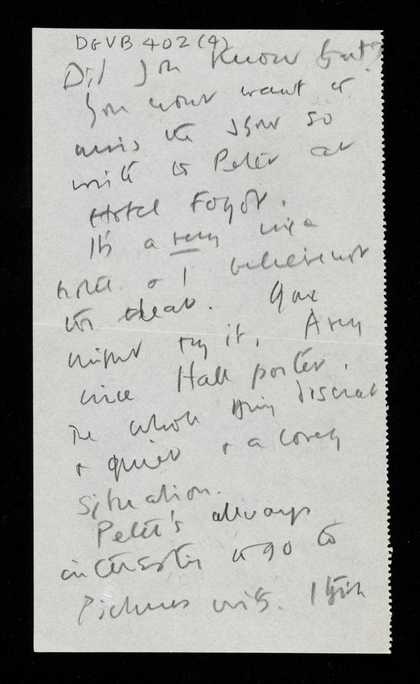 DGVB 402 (4)
Did you know that?
You wont want to
miss the show so
write to Peter at
Hotel Foyot.
It's a very nice
hotel & I believe not
too dear. You
might try it. A very
nice Hall porter.
The whole thing discreet
& quiet & a lovely
situation.
Peter's always
interesting to go to
Pictures with. I think